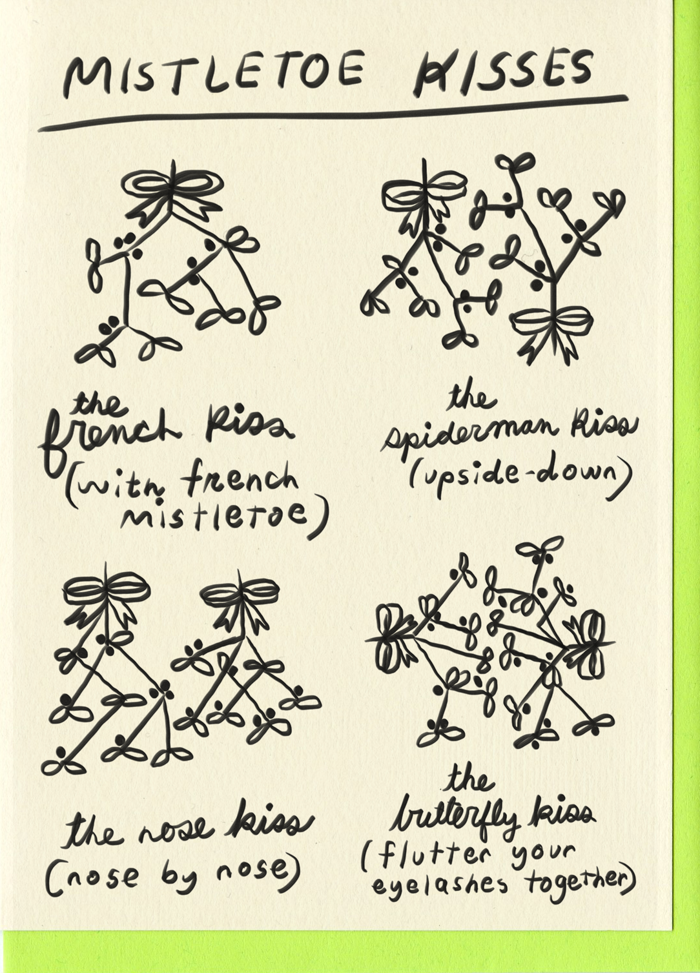 MISTLETOE KISSES
the
french kiss
(with french
mistletoe)
the
spiderman kiss
(upside-down)
the nose kiss
(nose by nose)
the
butterfly kiss
(flutter your
eyelashes together)